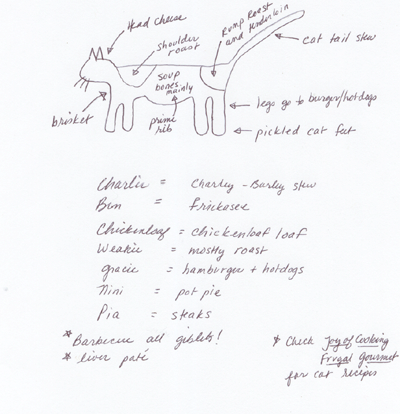 Head cheese
shoulder
roast
Rump Roast
and tenderloin
cat tail stew
soup
bones
mainly
prime
rib
brisket
legs go to burger/hotdogs
pickled cat feet
Charlie = Charley-Barley stew
Ben = frickasee
Chickenloaf = chickenloaf loaf
Weakie = mostly roast
gracie = hamburger + hotdogs
Nini = pot pie
Pia = steaks
* Barbecue all giblets!
* liver paté
* Check Joy of Cooking
Frugal Gourmet
for cat recipes